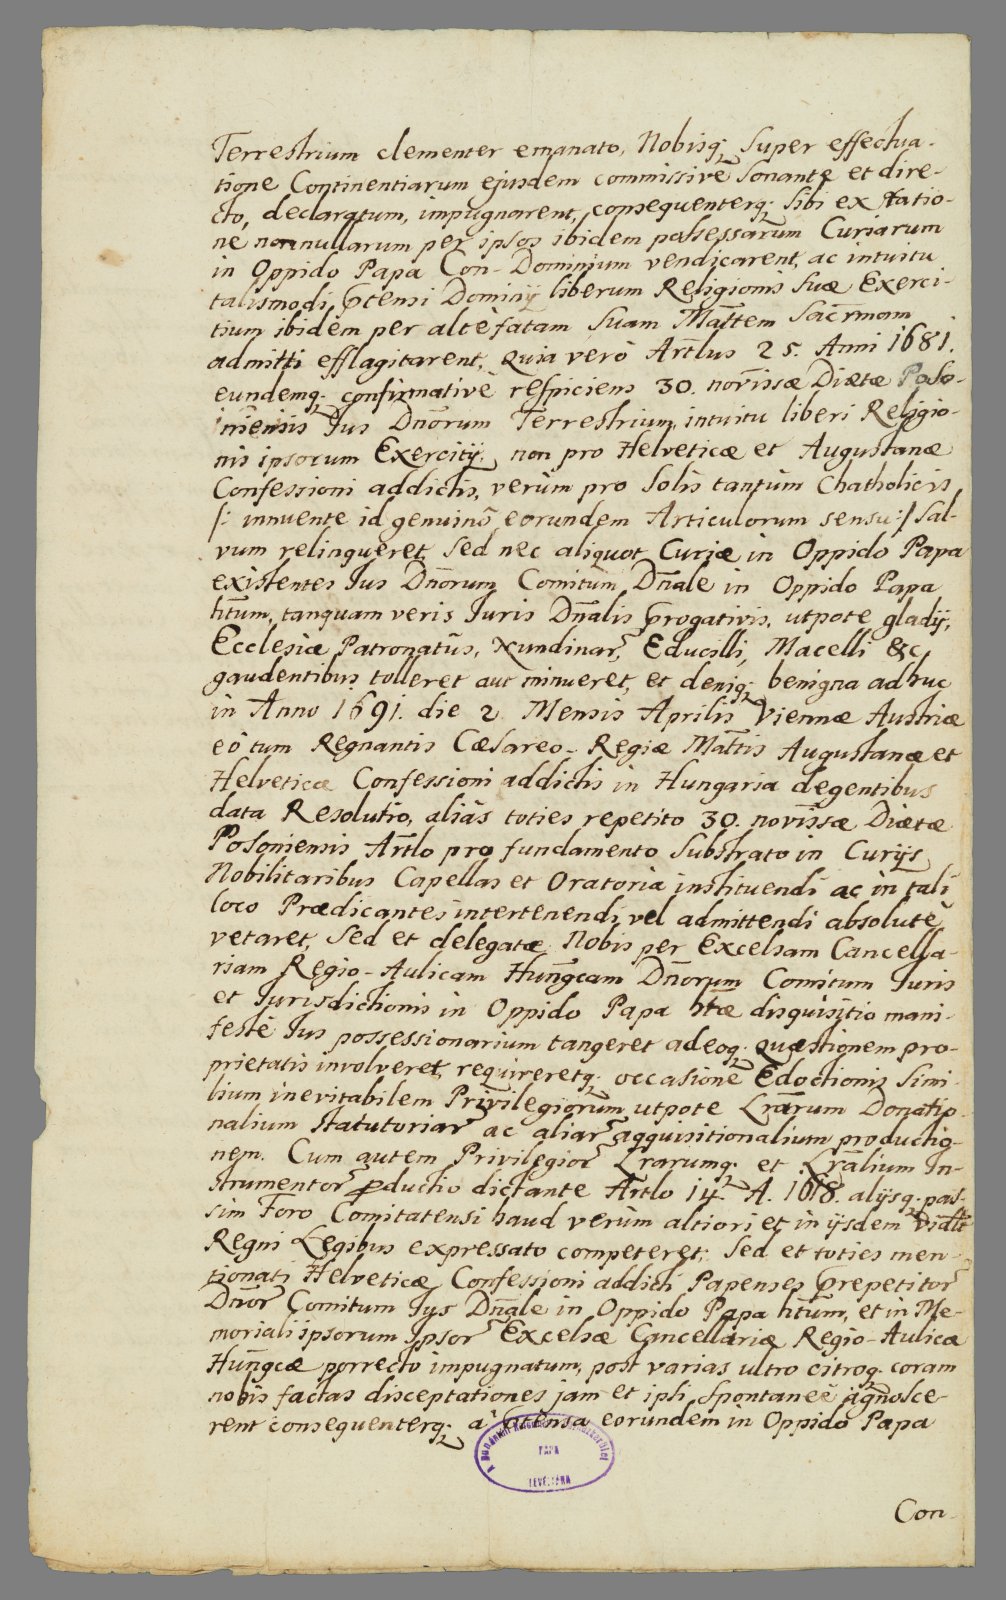 Terrestrium clementer emanato, Nobisq; super effectua-
tione Continentiarum ejusdem commissivè sonante et dire-
cto, declaratum, impugnarent, consequenterq; sibi ex ratio-
ne nonnullarum per ipsos ibidem possessarum Curiarum
in Oppido Papa Con-Dominium vendicarent, ac intuitu
talismodi, Prtensi Dominÿ liberum Religionis suæ Exerci-
tium ibidem per altèfatam Suam Mattem Sacrmam
admitti efflagitarent, quia verò Artlus 25. Anni 1681.
eundemq; confirmativè respiciens 30. novissæ Diætæ Poso-
niensis Jus Dnorum Terrestrium, intuitu liberi Religio-
nis ipsorum Exercitÿ, non pro Helveticæ et Augustanæ
Confessioni addictis, verùm pro Solis tantùm Chatholicis,
/: innuente id genuinô eorundem Articulorum sensu :/ Sal-
vum relinqueret, Sed nec aliquot Curiæ in Oppido Papa
existentes Jus Dnorum Comitum Dnale in Oppido Papa
htum, tanquam veris Juris Dnalis Prrogativis, utpote gladÿ,
Ecclesiæ Patronatûs, Nundinar, Educilli, Macelli &c,
gaudentibus tolleret aut minueret, et deniq; benigna adhuc
in Anno 1691. die 2 Mensis Aprilis Viennæ Austriæ
eô tum Regnantis Cæsareo-Regiæ Mattis Augustanæ et
Helveticæ Confessioni addictis in Hungaria degentibus
data Resolutio, aliàs toties repetito 30. novissæ Diætæ
Posoniensis Artlo pro fundamento Substrato in Curÿs
Nobilitaribus Capellas et Oratoria instituendi ac in tali
loco Prædicantes intertenendi, vel admittendi absolutè
vetaret, Sed et delegatæ Nobis per Excelsam Cancella-
riam Regio-Aulicam Hungcam Dnorum Comitum Juris
et Jurisdictionis in Oppido Papa htæ disquisitio mani-
festè Jus possessionarium tangeret adeoq; quæstionem pro-
prietatis involveret, requireretq; occasione Edoctionis simi-
lium, inevitabilem Privilegiorum, utpote Lrarum Donatio-
nalium Statutoriar ac aliar aqquisitionalium productio-
nem. Cum autem Privilegior Lrarumq; et Lralium In-
strumentor productio dictante Artlo 14. A. 1618. alÿsq; pas-
sim Foro Comitatensi haud verùm altiori et in ÿsdem vidlt
Regni Legibus expressato competeret; Sed et toties men-
tionati Helveticæ Confessioni addicti Papenses Prrepetitor
Dnor Comitum Jus Dnale in Oppido Papa htum, et in Me-
moriali ipsorum Ipsor Excelsæ Cancellariæ Regio-Aulicæ
Hungcæ porrecto impugnatum, post varias ultro citroq; coram
nobis factas disceptationes jam et ipsi Spontaneè agnosce-
rent consequenterq; à Prtensa eorundem in Oppido Papa
PAPA
LEVÉLTÁRA
Con-